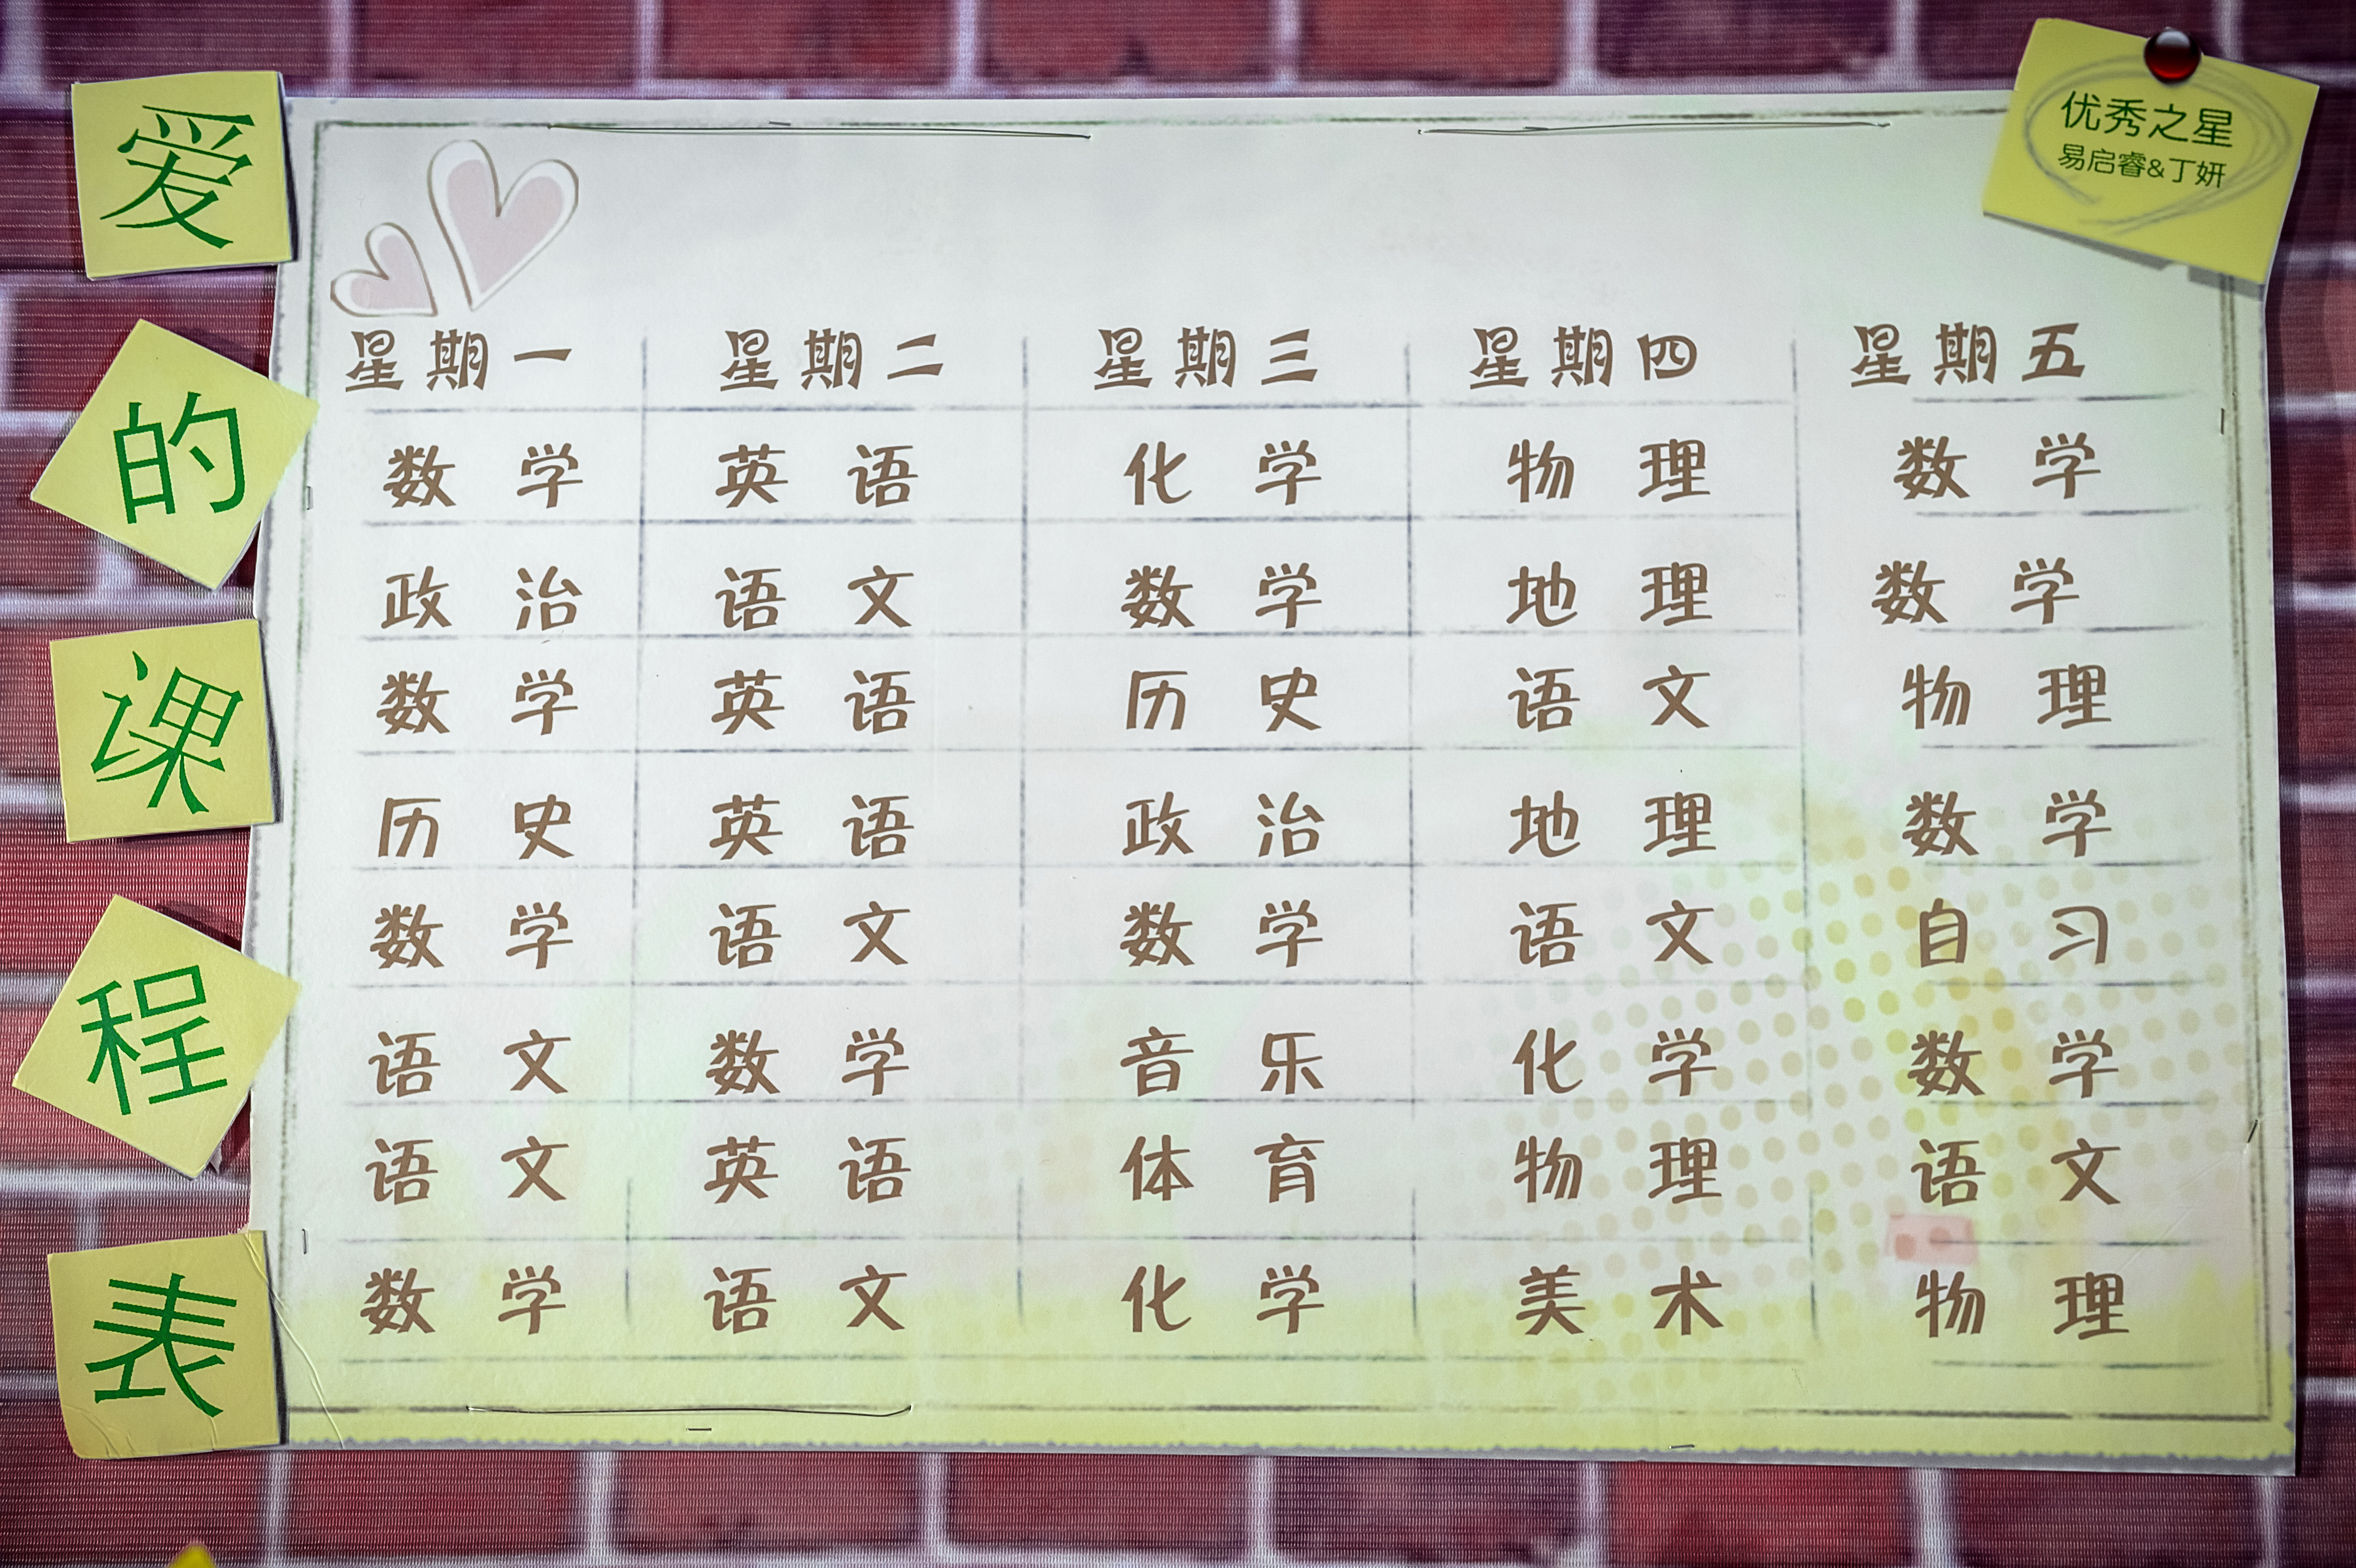 爱
的
课
程
表
优秀之星
易启睿&丁妍
星期一 星期二 星期三 星期四 星期五
数学 英语 化学 物理 数学
政治 语文 数学 地理 数学
数学 英语 历史 语文 物理
历史 英语 政治 地理 数学
数学 语文 数学 语文 自习
语文 数学 音乐 化学 数学
语文 英语 体育 物理 语文
数学 语文 化学 美术 物理